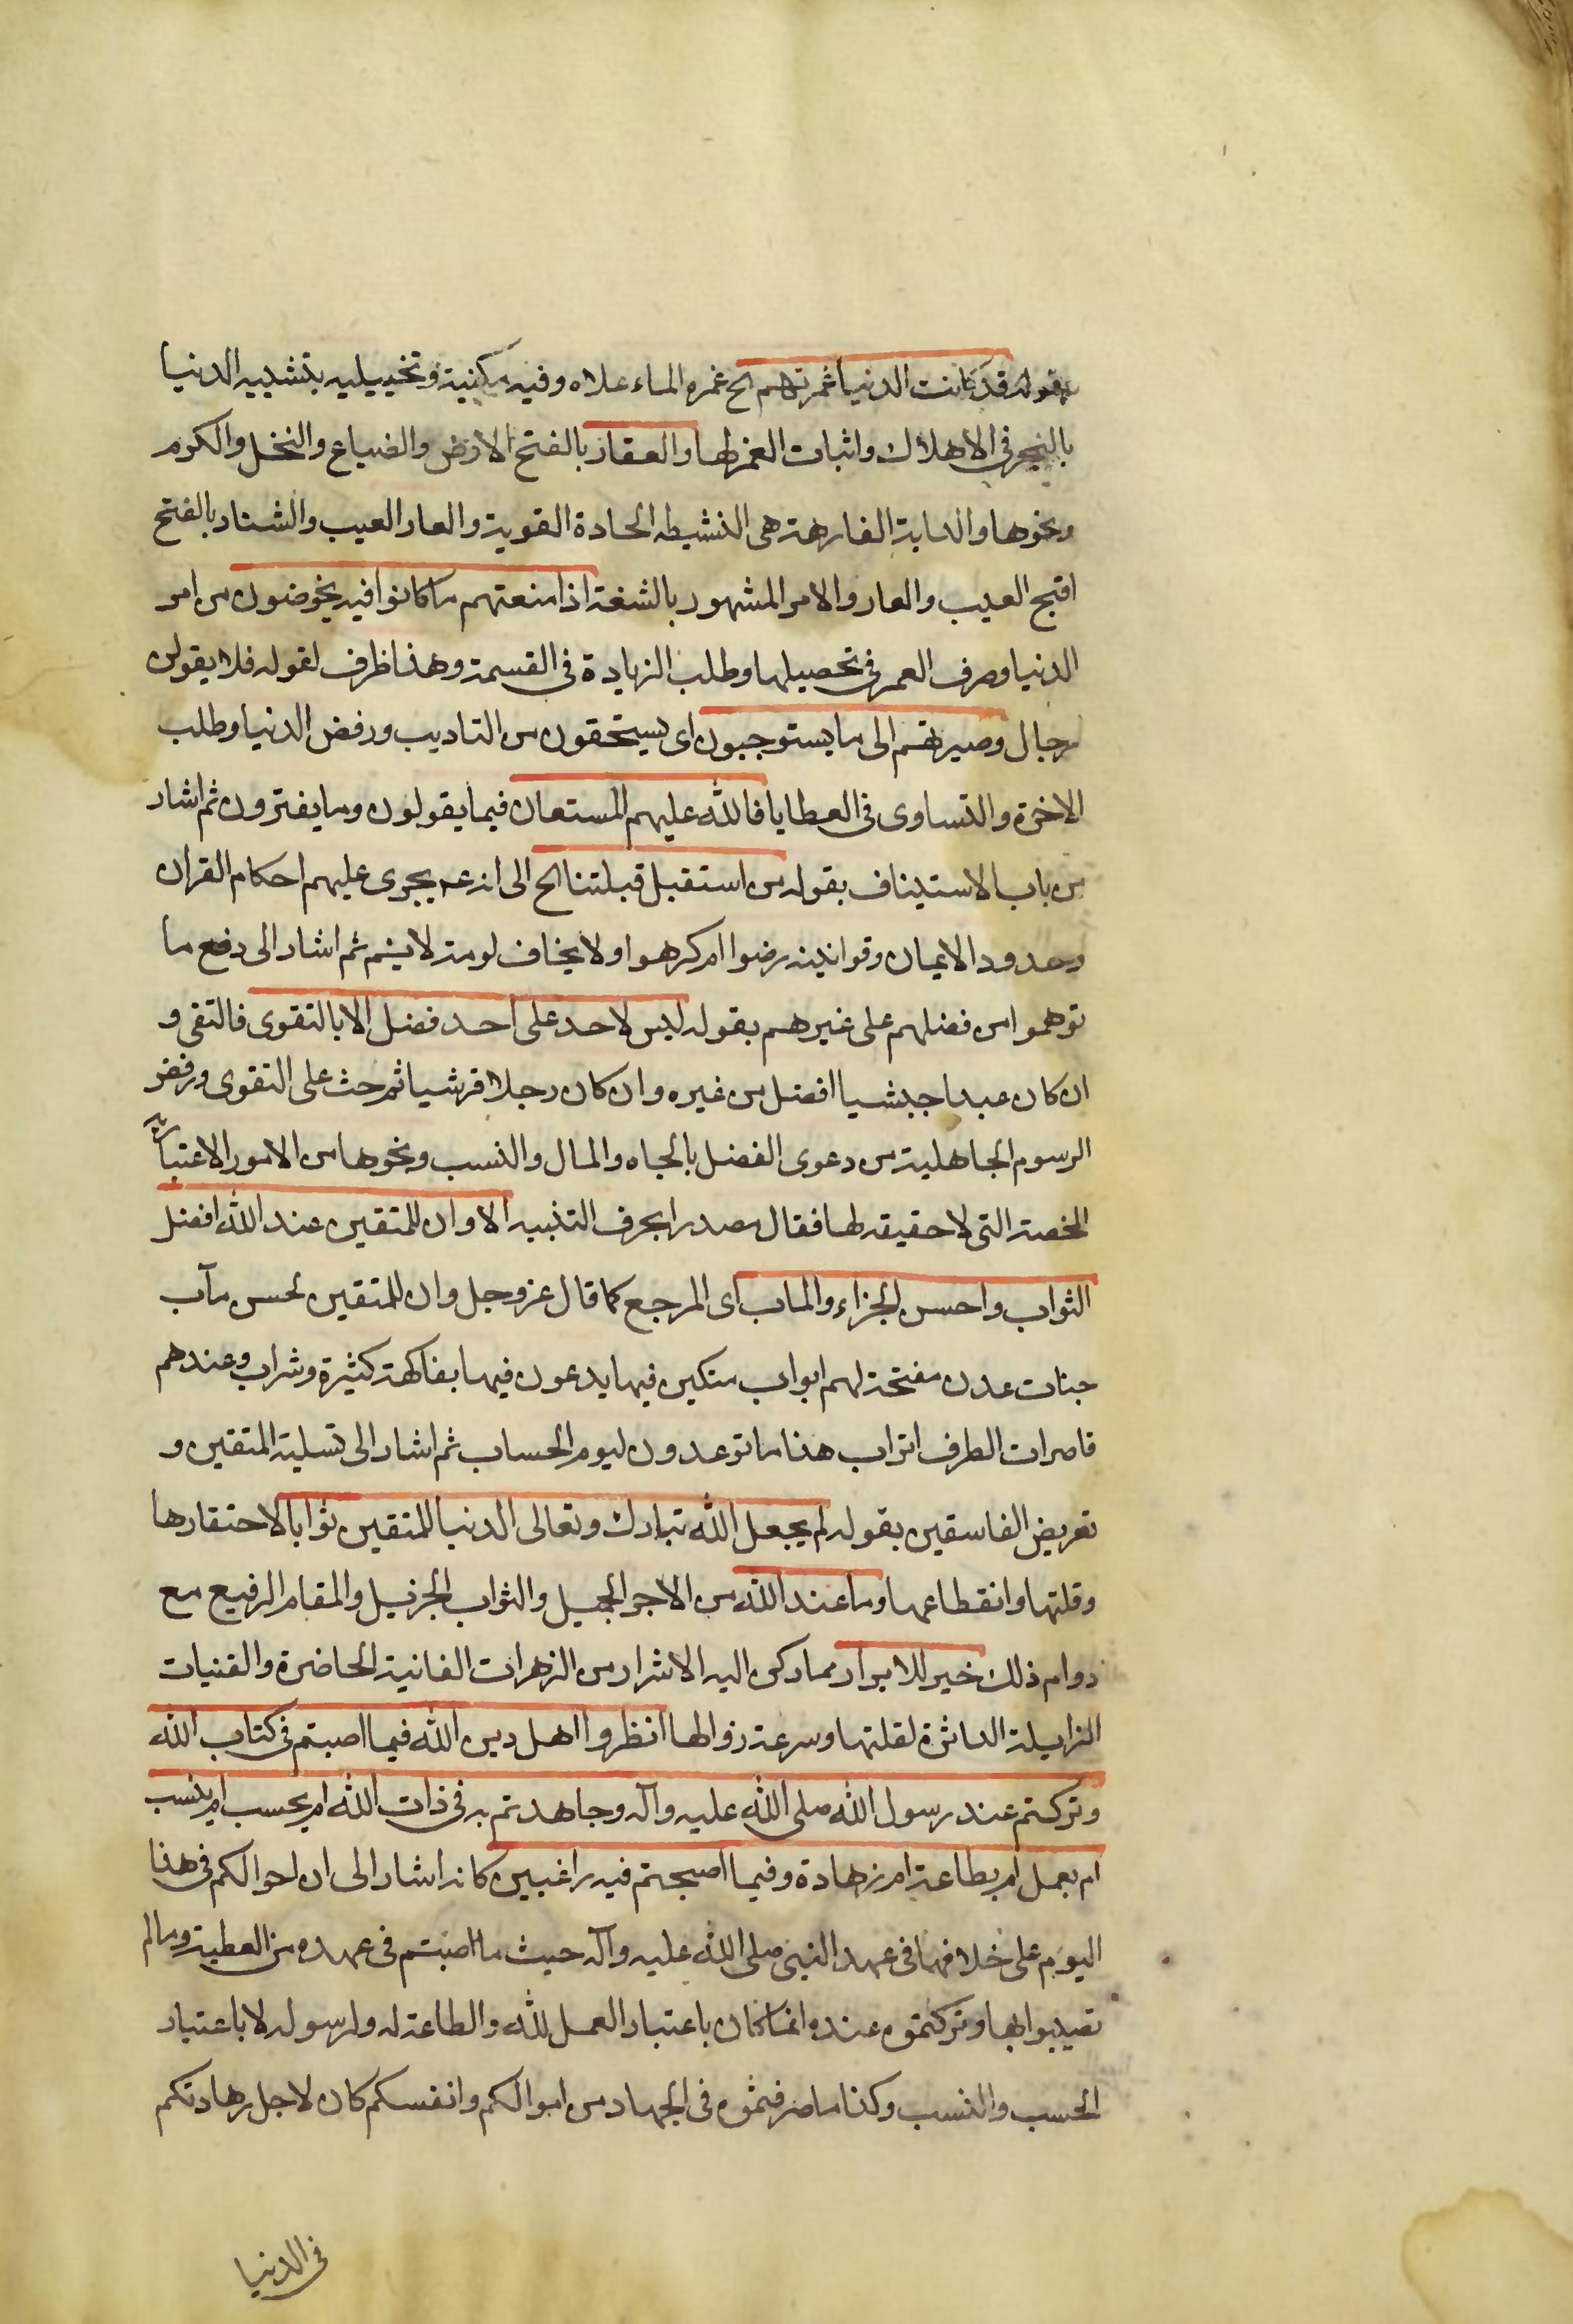 بقوله قد كانت الدنيا غمرتهم الخ غمره الماء علاه وفيه مكنية وتخييلية بتشبيه الدنيا
بالبحر في الاهلاك واثبات الغمر لها والعقار بالفتح الارض والضياع والنخل والكرم
ونحوها والدابة الفارهة هى النشيطه الحادة القوية والعار العيب والشنار بالفتح
اقبح العيب والعار والامر المشهور بالشنعة اذا منعتهم ما كانوا فيه يخوضون من امر
الدنيا وصرف العمر في تحصيلها وطلب الزيادة في القسمة وهذا ظرف لقوله فلا يقولن
رجال وصيرتهم الى ما يستوجبون اى يستحقون من التاديب ورفض الدنيا وطلب
الاخرة والتساوى في العطايا فالله عليهم المستعان فيما يقولون وما يفترون ثم اشار
من باب الاستيناف بقوله من استقبل قبلتنا الخ الى انه عم يجرى عليهم احكام القران
وحدود الايمان وقوانينه رضوا ام كرهوا ولا يخاف لومة لايم ثم اشار الى دفع ما
توهموا من فضلهم على غيرهم بقوله ليس لاحد على احد فضل الا بالتقوى فالتقى و
ان كان عبدا حبشيا افضل من غيره وان كان رجلا قرشيا ثم حث على التقوى ورفض
الرسوم الجاهلية من دعوى الفضل بالجاه والمال والنسب ونحوها من الامور الاعتبارية
المحضة التى لا حقيقه لها فقال مصدرا بحرف التنبيه الا وان للمتقين عند الله افضل
الثواب واحسن الجزاء والماب اى المرجع كما قال عز وجل وان للمتقين لحسن مآب
جنات عدن مفتحة لهم ابواب متكين فيها يدعون فيها بفاكهة كثيرة وشراب وعندهم
قاصرات الطرف اتراب هذا ما توعدون ليوم الحساب ثم اشار الى تسلية المتقين و
تعريض الفاسقين بقوله لم يجعل الله تبارك وتعالى الدنيا للمتقين ثوابا لاحتقارها
وقلتها وانقطاعها وما عند الله من الاجر الجميل والثواب الجزيل والمقام الرفيع مع
دوام ذلك خير للابرار مما ركن اليه الاشرار من الزهرات الفانية الحاضرة والقنيات
الزايلة الداثرة لقلتها وسرعة زوالها انظروا اهل دين الله فيما اصبتم في كتاب الله
وتركتم عند رسول الله صلى الله عليه وآله وجاهدتم به في ذات الله ام بحسب ام بنسب
ام بعمل ام بطاعة ام زهادة وفيما اصبحتم فيه راغبين كانه اشار الى ان احوالكم في هذا
اليوم على خلافها في عهد النبي صلى الله عليه وآله حيث ما اصبتم في عهده من العطية وما لم
تصيبوا بها وتركتموه عنده انما كان باعتبار العمل لله والطاعة له ولرسوله لا باعتبار
الحسب والنسب وكذا ما صرفتموه في الجهاد من اموالكم وانفسكم كان لاجل زهادتكم
في الدنيا